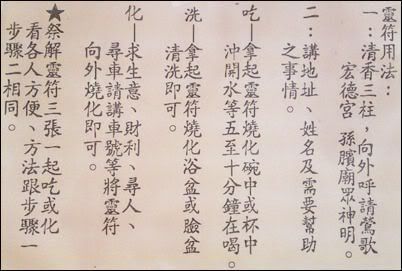 靈符用法：
一：清香三柱，向外呼請鶯歌
宏德宮 孫臏廟眾神明。
二：講地址、姓名及需要幫助
之事情。
吃—拿起靈符燒化碗中或杯中
沖開水等五至十分鐘在喝。
洗—拿起靈符燒化浴盆或臉盆
清洗即可。
化—求生意、財利、尋人、
尋車請講車號等將靈符
向外燒化即可。
★祭解靈符三張一起吃或化
看各人方便、方法跟步驟一
步驟二相同。